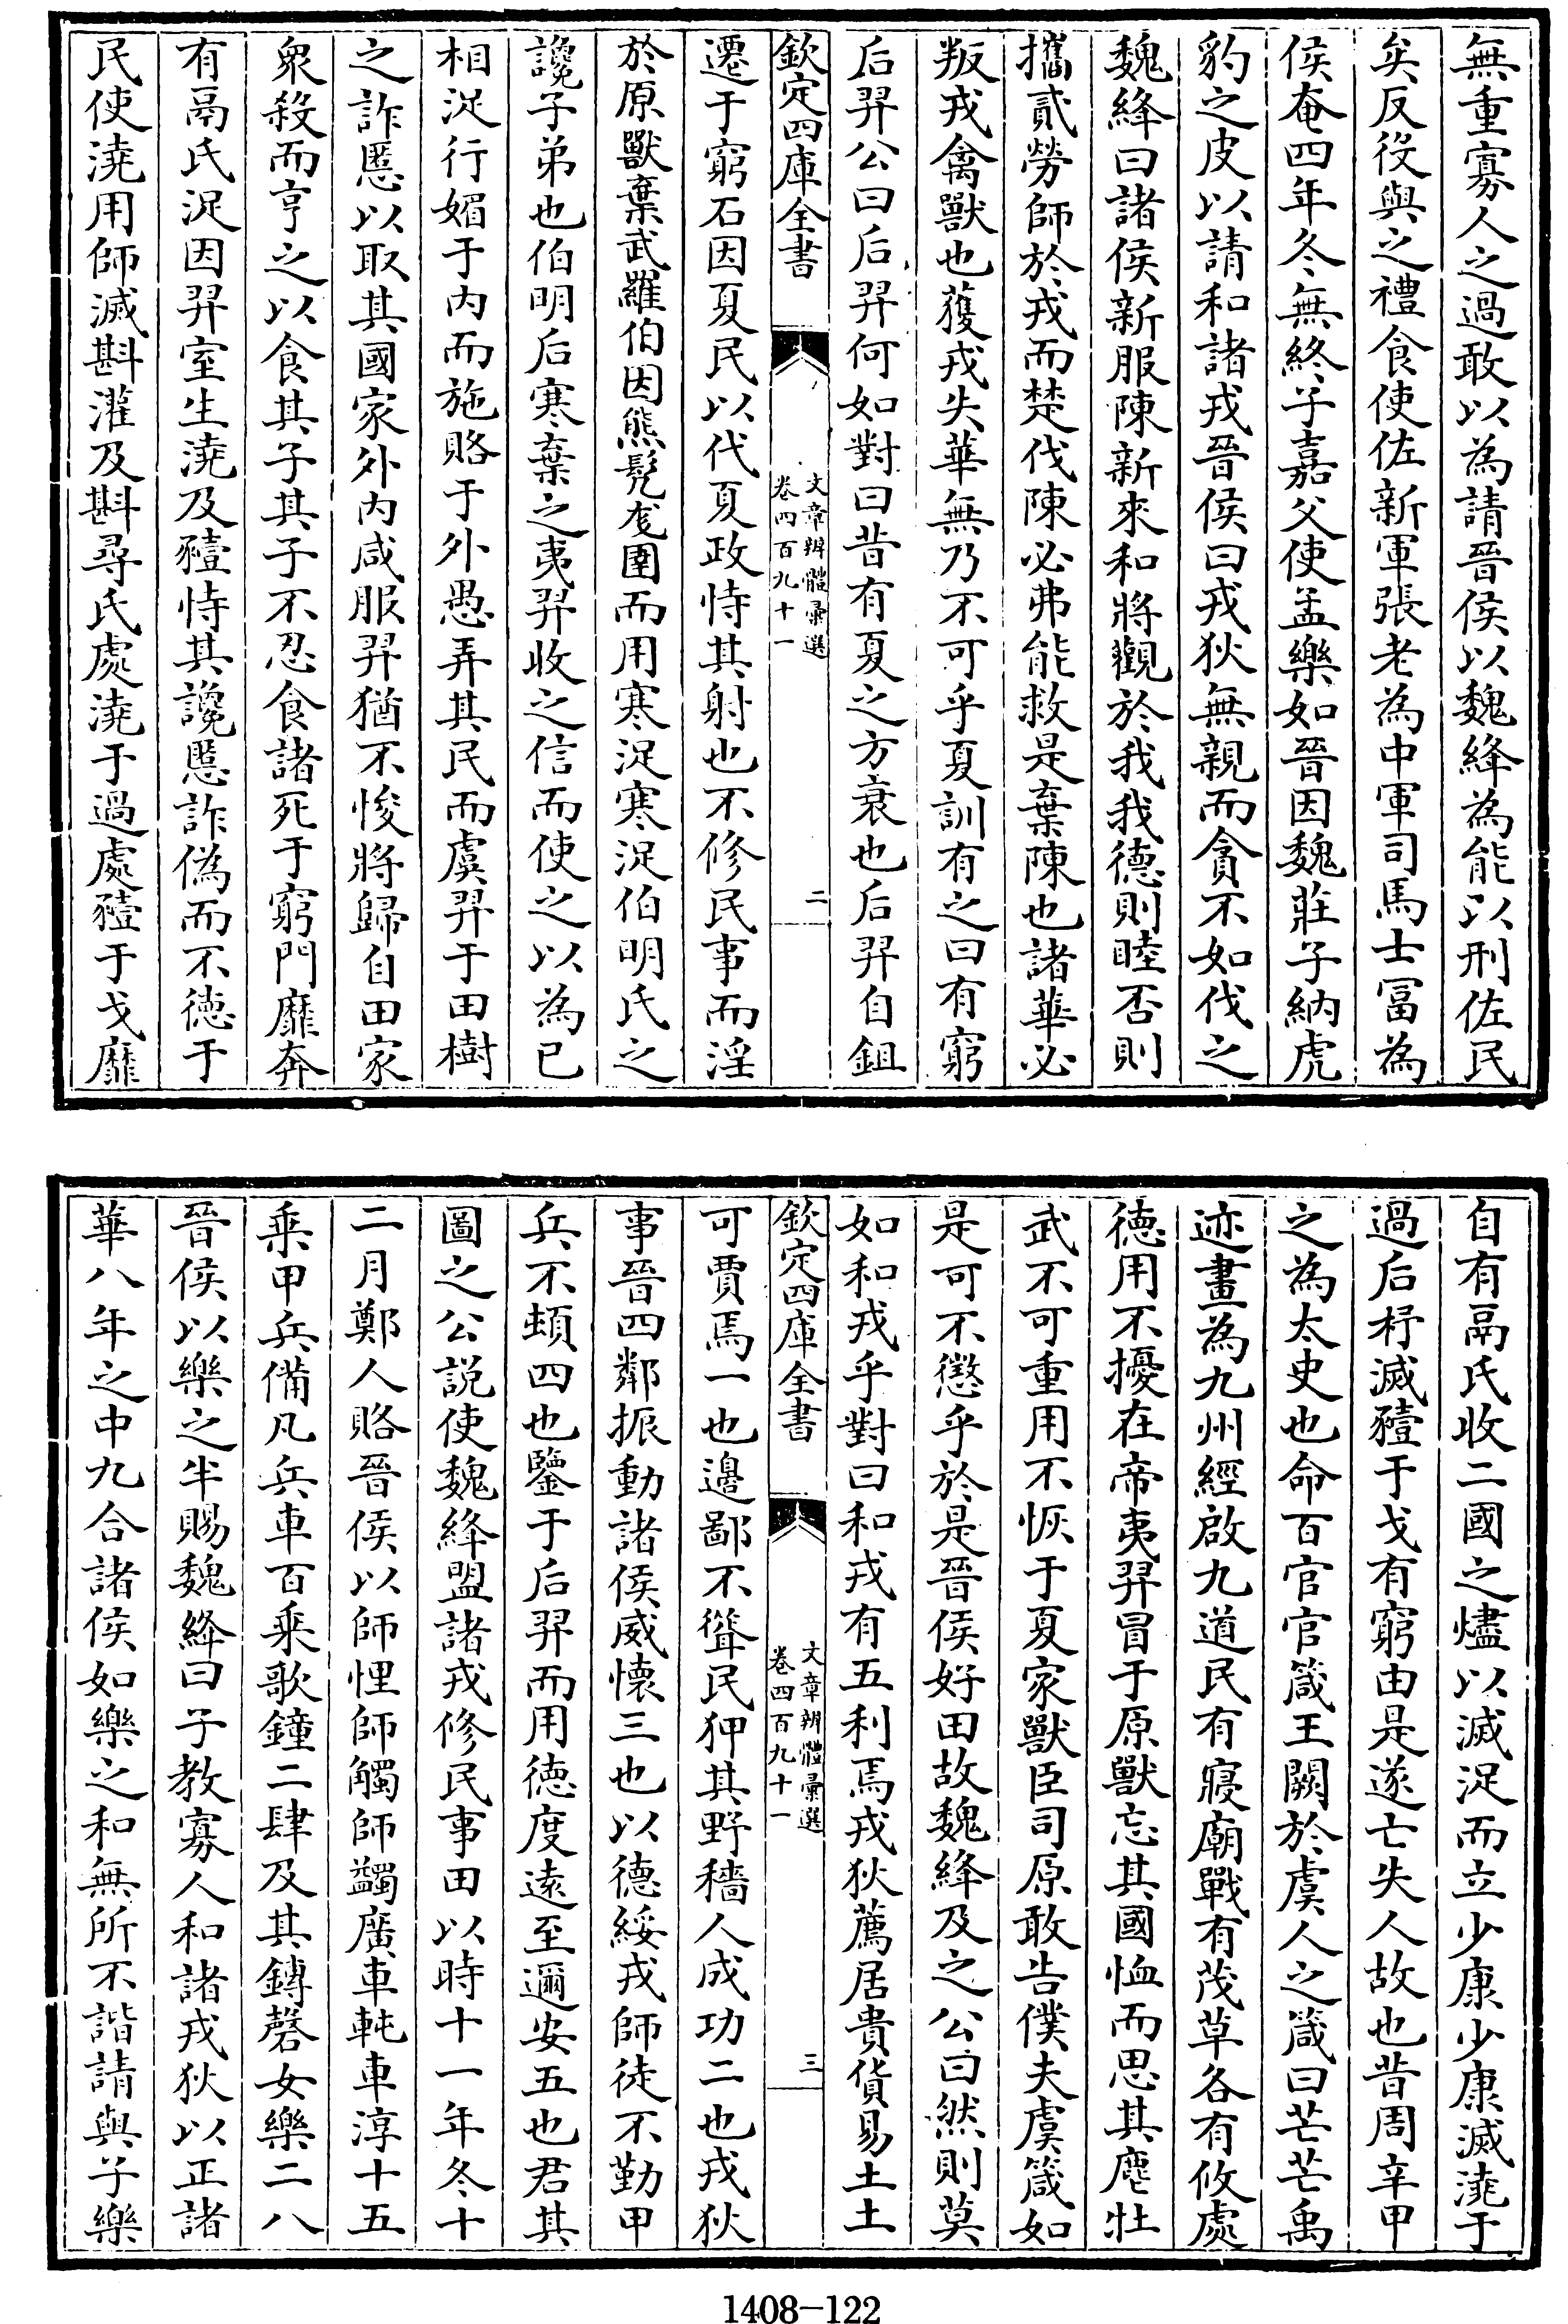 無重寡人之過敢以為請晉侯以魏絳為能以刑佐民
矣反役與之禮食使佐新軍張老為中軍司馬士富為
侯奄四年冬無終子嘉父使孟樂如晉因魏莊子納虎
豹之皮以請和諸戎晉侯曰戎狄無親而貪不如伐之
魏絳曰諸侯新服陳新來和將觀於我我德則睦否則
攜貳勞師於戎而楚伐陳必弗能救是棄陳也諸華必
叛戎禽獸也獲戎失華無乃不可乎夏訓有之曰有窮
后羿公曰后羿何如對曰昔有夏之方衰也后羿自鉏
欽定四庫全書
文章辨體彙選
卷四百九十一
二
遷于窮石因夏民以代夏政恃其射也不修民事而淫
於原獸棄武羅伯因熊髡尨圉而用寒浞寒浞伯明氏之
讒子弟也伯明后寒棄之夷羿收之信而使之以為已
相浞行媚于内而施賂于外愚弄其民而虞羿于田樹
之詐慝以取其國家外内咸服羿猶不悛將歸自田家
衆殺而亨之以食其子其子不忍食諸死于窮門靡奔
有鬲氏浞因羿室生澆及豷恃其讒慝詐偽而不德于
民使澆用師滅斟灌及斟尋氏處澆于過處豷于戈靡
自有鬲氏收二國之燼以滅浞而立少康少康滅澆于
過后杼滅豷于戈有窮由是遂亡失人故也昔周辛甲
之為太史也命百官官箴王闕於虞人之箴曰芒芒禹
迹畫為九州經啟九道民有寢廟戰有茂草各有攸處
德用不擾在帝夷羿冒于原獸忘其國恤而思其麀牡
武不可重用不恢于夏家獸臣司原敢告僕夫虞箴如
是可不懲乎於是晉侯好田故魏絳及之公曰然則莫
如和戎乎對曰和戎有五利焉戎狄薦居貴貨易土土
欽定四庫全書
文章辨體彙選
卷四百九十一
三
可賈焉一也邊鄙不聳民狎其野穡人成功二也戎狄
事晉四鄰振動諸侯威懷三也以德綏戎師徒不勤甲
兵不頓四也鑒于后羿而用德度遠至邇安五也君其
圖之公説使魏絳盟諸戎修民事田以時十一年冬十
二月鄭人賂晉侯以師悝師觸師蠲廣車軘車淳十五
乘甲兵備凡兵車百乘歌鐘二肆及其鎛磬女樂二八
晉侯以樂之半賜魏絳曰子教寡人和諸戎狄以正諸
華八年之中九合諸侯如樂之和無所不諧請與子樂
1408-122